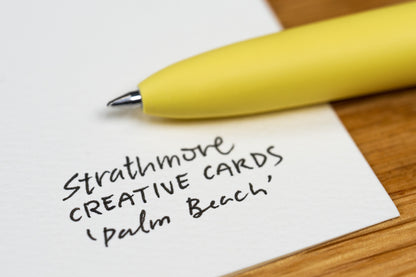 Strathmore
CREATIVE CARDS
'Palm Beach'